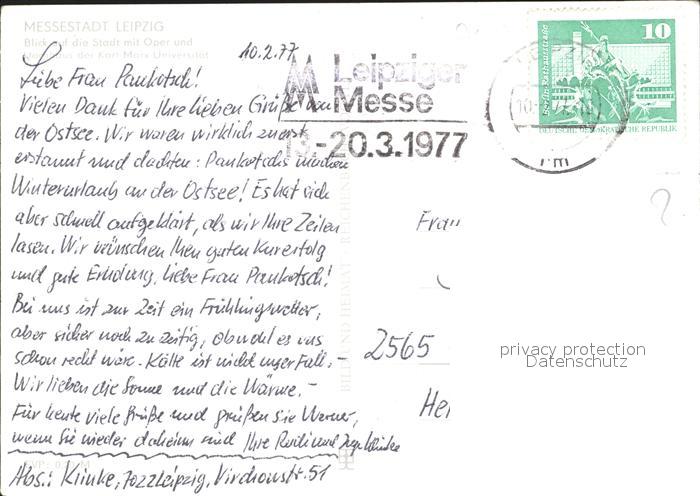 MESSESTADT LEIPZIG
Blick auf die Stadt mit Oper und
Karl-Marx-Universität
10.2.77
Liebe Frau Pankotsch!
Vielen Dank für Ihre lieben Grüße von
der Ostsee. Wir waren wirklich zuerst
erstaunt und dachten: Pankotschs machen
Winterurlaub an der Ostsee! Es hat sich
aber schnell aufgeklärt, als wir Ihre Zeilen
lasen. Wir wünschen Ihnen guten Kurerfolg
und gute Erholung, liebe Frau Pankotsch!
Bei uns ist zur Zeit ein Frühlingswetter,
aber sicher noch zu zeitig, obwohl es uns
schon recht wäre. Kälte ist nicht unser Fall,-
Wir lieben die Sonne und die Wärme.-
Für heute viele Grüße und grüßen Sie Werner,
wenn Sie wieder daheim sind Ihre und
Abs.: Klinke, 7022 Leipzig, Virchowstr. 51
Leipziger
Messe
13.-20.3.1977
10
Berlin, Rathausstraße
DEUTSCHE DEMOKRATISCHE REPUBLIK
BILD UND HEIMAT
Frau
2565
Hei
privacy protection
Datenschutz